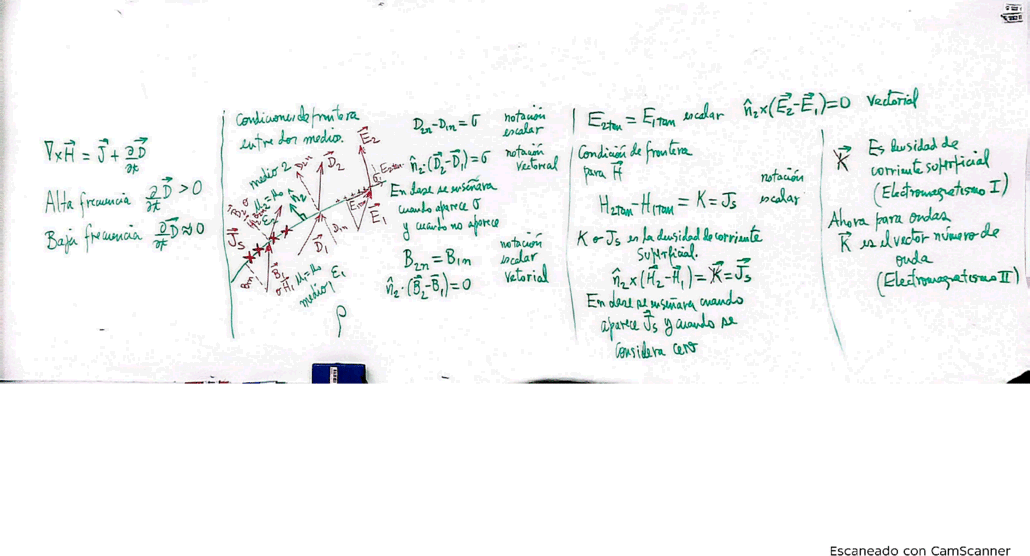 ∇×H⃗ = J⃗ + ∂D⃗/∂t
Alta frecuencia ∂D⃗/∂t > 0
Baja frecuencia ∂D⃗/∂t ≈ 0
condiciones de frontera
entre dos medio.
medio 2
D₂ₙ
D⃗₂
E⃗₂
n̂₂
J⃗s
B⃗₁
D⃗₁
D₁ₙ
E⃗₁
medio 1
ε₁
ρ
D₂ₙ-D₁ₙ = σ notación escalar
n̂₂·(D⃗₂-D⃗₁) = σ notación vectorial
En clase se enseñara
cuando aparece σ
y cuando no aparece
B₂ₙ = B₁ₙ notación escalar
n̂₂·(B⃗₂-B⃗₁) = 0 vetorial
E₂tan = E₁tan escalar n̂₂×(E⃗₂-E⃗₁)=0 vectorial
Condición de frontera
para H⃗
H₂tan-H₁tan = K = Js notación escalar
K o Js es la densidad de corriente
superficial.
n̂₂×(H⃗₂-H⃗₁) = K⃗ = J⃗s
En clase se enseñara cuando
aparece J⃗s y cuando se
considera cero
K⃗ Es densidad de
corriente superficial
(Electromagnetismo I)
Ahora para ondas
K⃗ es el vector número de
onda
(Electromagnetismo II)
Escaneado con CamScanner